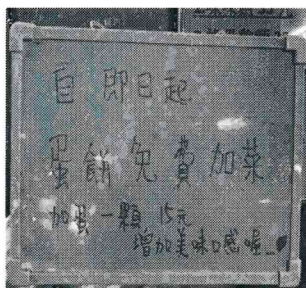 自即日起
蛋餅免費加菜
加蛋一顆 15元
增加美味口感喔